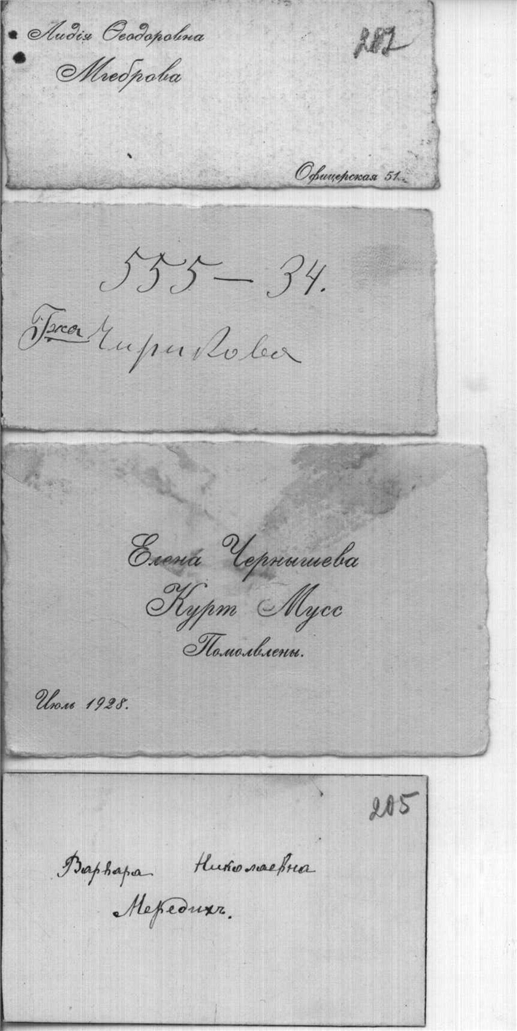 Лидія Ѳеодоровна
282
Мгеброва
Офицерская 51.
555 — 34.
Г-жа Чирикова
Елена Чернышева
Курт Мусс
Помолвлены.
Июль 1928.
205
Варвара Николаевна
Мередихъ.